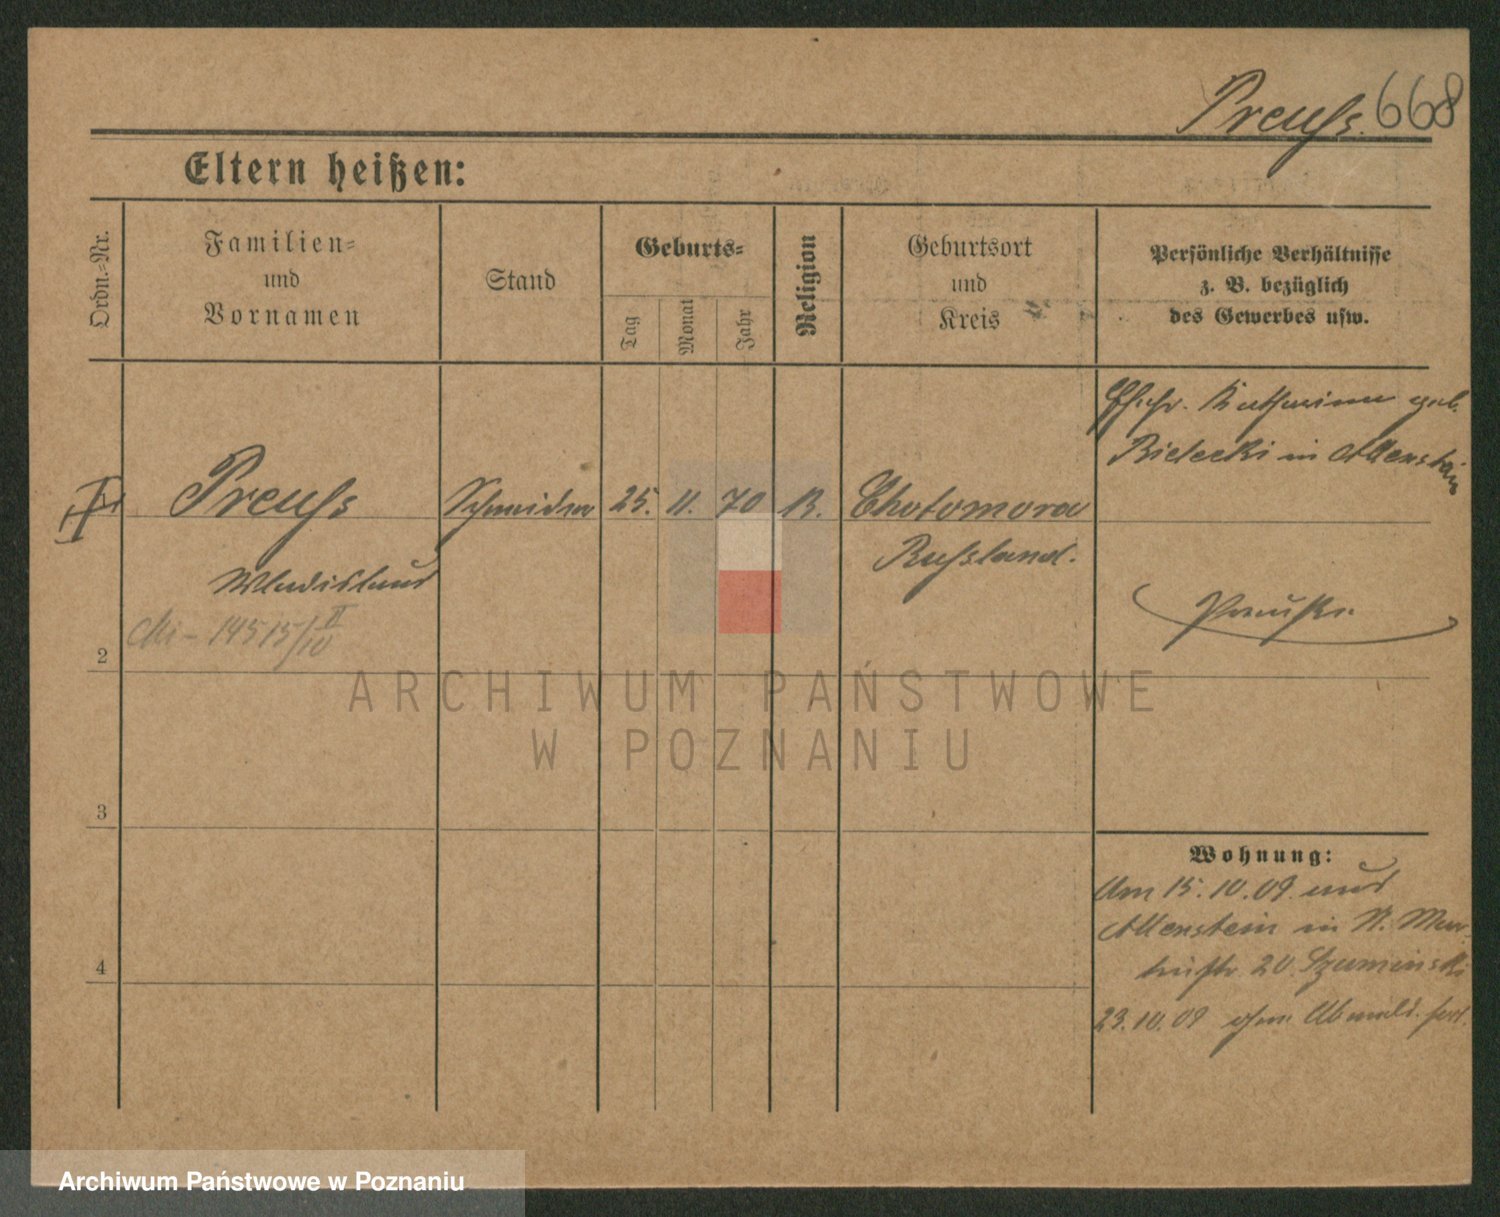 Preuß. 668
Eltern heißen:
Ordn.=Nr.
Familien=
und
Vornamen
Stand
Geburts=
Tag
Monat
Jahr
Religion
Geburtsort
und
Kreis
Persönliche Verhältnisse
z. B. bezüglich
des Gewerbes usw.
Ehefr. Katharina geb.
Bielecki in Allenstein
Preuß Schneider 25. 11. 70 K. Chotomora
Rußland.
Wladislaus
Preuße
2
3
4
Wohnung:
Am 15.10.09. aus
Allenstein in N.
20. Szuminski
23.10.09 ohne Abmeld. fort.
ARCHIWUM PAŃSTWOWE
W POZNANIU
Archiwum Państwowe w Poznaniu